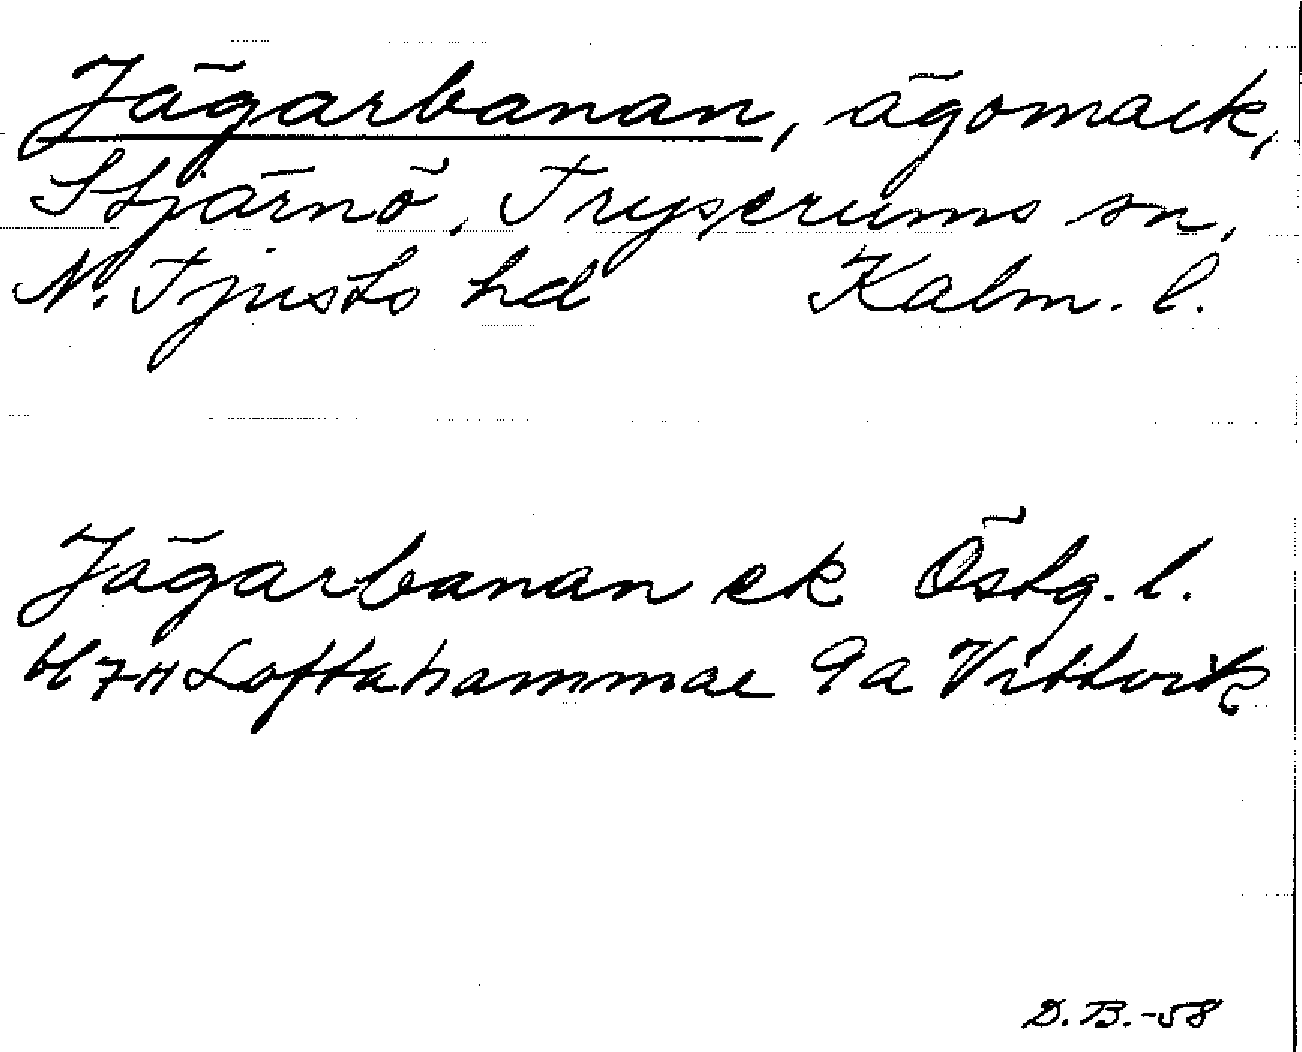 Jägarbanan, ägomark,
Stjärnö, Tryserums sn,
N. Tjusts hd Kalm. l.
Jägarbanan ek Östg. l.
H7H Loftahammar 9a Vittvik
D. B. -58